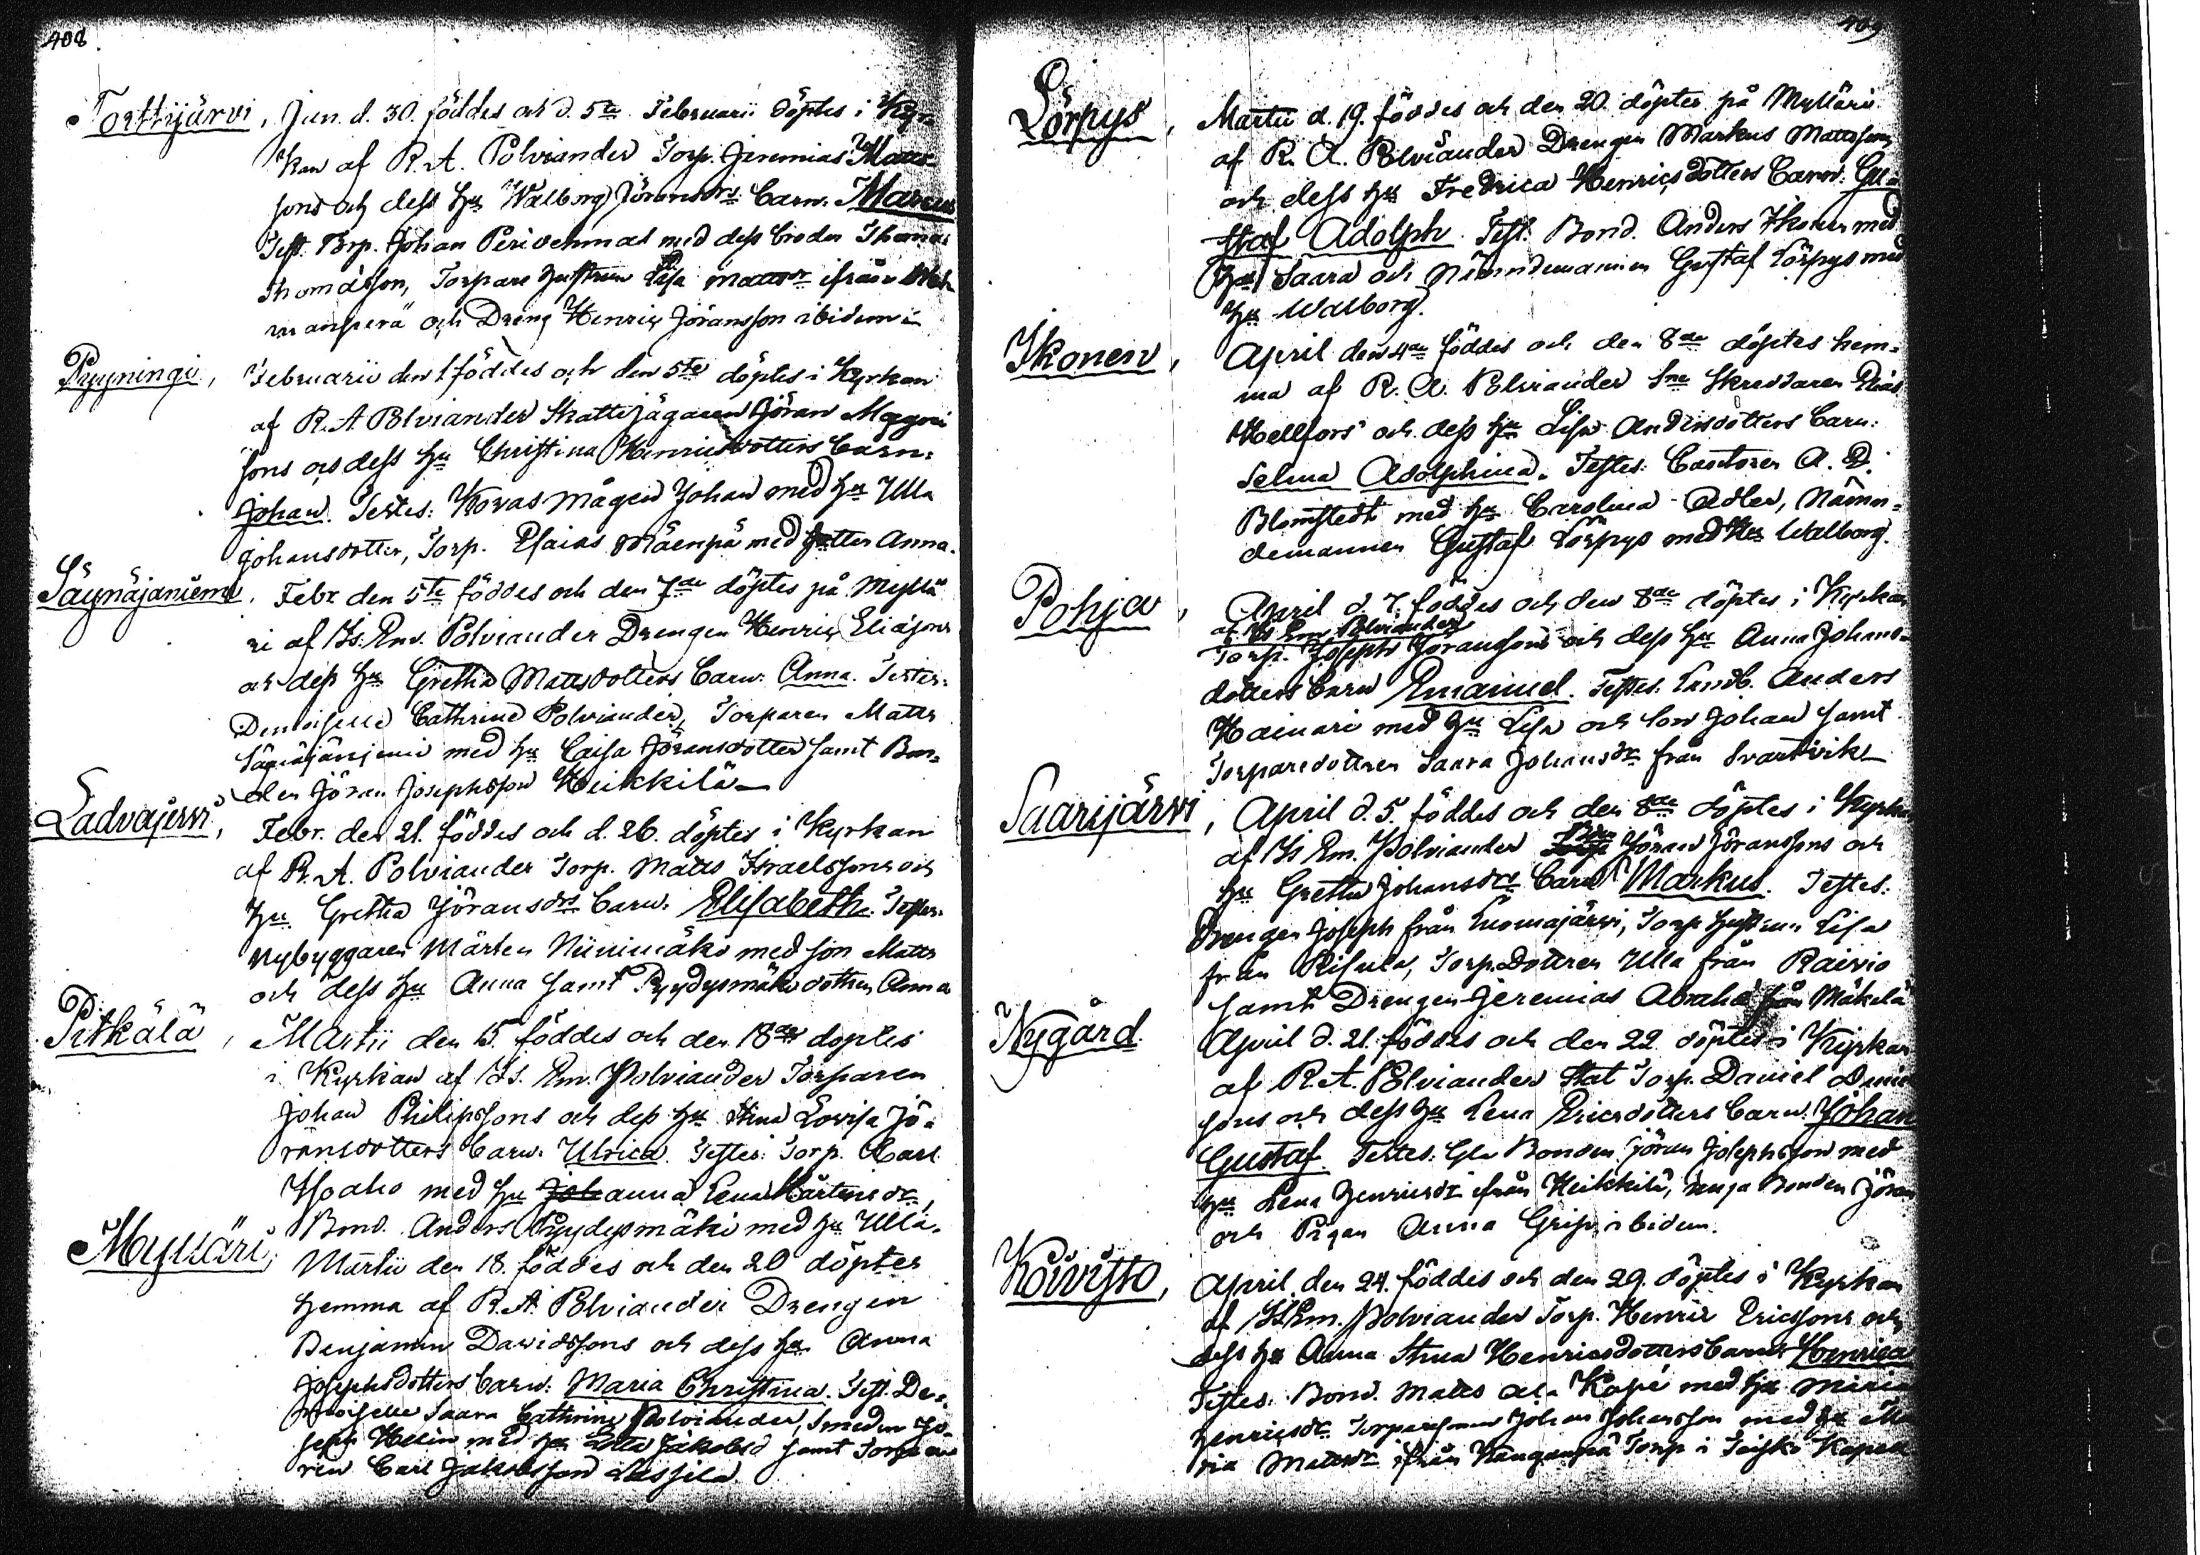 408.
Torttijärvi, Jan. d. 30. föddes och d. 5te Februarii döptes i Kyr-
kan af R. A. Polviander Torp. Jeremias Matts-
sons och dess hu Walborg Jöransdrs barn. Marcus
Test. Torp. Johan Perivehmas med dess broder Thomas
Thomasson, Torpare hustrun Lisa Mattsdr ifrån
och Dreng Henric Jöransson ibidem
Pyyningi, Februarii den 1 föddes och den 5te döptes i Kyrkan
af R. A. Polviander Skattejägaren Jöran
sons och dess hu Christina Henricsdotters barn:
Johan. Testes: Kovas mågen Johan med hu Ulla
Johansdotter, Torp. Esaias Mäenpä med dotter Anna.
Säynäjäniemi. Febr. den 5te föddes och den 7de döptes på Myllä
ri af Hs. Em. Polviander Drengen Henric Eliæsons
och dess hu Gretha Mattsdotters barn. Anna. Testes:
Demoiselle Cathrine Polviander, Torparen Matts
Säynäjäniemi med hu Caisa Jöransdotter samt Bon-
den Jöran Josephsson Heikkilä
Ladvajervi, Febr. den 21. föddes och d. 26. döptes i Kyrkan
af R. A. Polviander Torp. Matts Israelssons och
hu Gretha Jöransdrs barn. Elisabeth. Testes:
Nybyggaren Mårten Niinimäki med son Matts
och dess hu Anna samt Pyydysmäki dottren Anna
Pitkälä, Martii den 15. föddes och den 18de döptes
i Kyrkan af Hs. Em. Polviander Torparen
Johan Philipssons och dess hu Stina Lovisa Jö-
ransdotters barn. Ulrica. Testes: Torp. Carl
Isoaho med hu Johanna Lena Mårtensdr,
Bond. Anders Pyydysmäki med hu Ulla.
Mylläri, Martii den 18. föddes och den 20 döptes
hemma af R. A. Polviander Drengen
Benjamin Davidssons och dess hu Anna
Josephsdotters barn: Maria Christina. Test. De-
moiselle Saara Cathrine Polviander, Smeden Jo-
seph Helin med hu Lotta Jakobsd samt Torpa-
ren Carl Jakobsson Lassila
409
Lörpys, Martii d. 19. föddes och den 20. döptes på Myllärii
af R. A. Polviander Drengen Markus Mattsson
och dess hu Fredrica Henricsdotters barn. Gu-
staf Adolph. Test. Bond. Anders Ikonen med
hu Saara och Nämndemannen Gustaf Lörpys med
hu Walborg.
Ikonen, April den 4de föddes och den 8de döptes hem-
ma af R. A. Polviander Sne Skreddaren Elias
Hellfors och dess hu Lisa Andersdotters barn:
Selma Adolphina. Testes: Cantoren A. D.
Blomstedt med hu Carolina Adler, Nämn-
demannen Gustaf Lörpys med hu Walborg.
Pohja, April d. 7. föddes och den 8de döptes i Kyrkan
af Hs Em Polviander
Torp. Joseph Joranssons och dess hu Anna Johans-
dotters barn Emanuel. Testes. Landb. Anders
Hainari med hu Lisa och son Johan samt
Torparedottren Saara Johansdr från Svartvik
Saarijärvi, April d. 5. föddes och den 8de döptes i Kyrkan
af Hs Em. Polviander Bon Jöran Jöranssons och
hu Gretha Johansdrs barn Markus. Testes:
Drengen Joseph från Luomajärvi, Torp. hustrun Lisa
från Risula, Torp. dottren Ulla från Raivio
samt Drengen Jeremias Abrahs från Mäkelä
Nygård. April d. 21. föddes och den 22 döptes i Kyrkan
af R. A. Polviander Stat Torp. Daniel
sons och dess hu Lena Ericsdotters barn. Johan
Gustaf. Testes. Gla Bonden Jöran Josephsson med
hu Lena Henricsdr ifrån Heikkilä, unga Bonden Jöran
och Pigan Anna Grip ibidem.
Koivisto, April den 24. föddes och den 29. döptes i Kyrkan
af Hs Em. Polviander Torp. Henric Ericssons och
dess hu Anna Stina Henricsdotters barn Henrica
Testes. Bond. Matts ala Kapé med hu Maria
Henricsdr Torparesonen Johan Johansson med hu Ma
ria Mattsdr ifrån Kangaspä Torp i Teisko Kapell
KODAK SAFETY